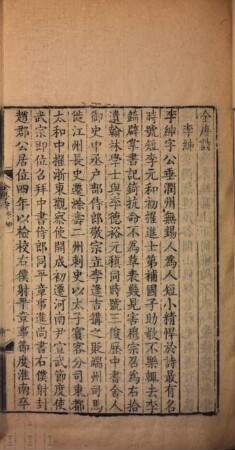 全唐詩
李紳
李紳字公垂潤州無錫人為人短小精悍於詩最有名
時號短李元和初擢進士第補國子助敎不樂輒去李
錡辟掌書記錡抗命不為草表幾見害穆宗召為右拾
遺翰林學士與李德裕元稹同時號三俊歷中書舍人
御史中丞戶部侍郎敬宗立李逢吉搆之貶端州司馬
徙江州長史遷滁壽二州刺史以太子賓客分司東都
太和中擢浙東觀察使開成初遷河南尹宣武節度使
武宗即位召拜中書侍郎同平章事進尚書右僕射封
趙郡公居位四年以檢校右僕射平章事節度淮南卒